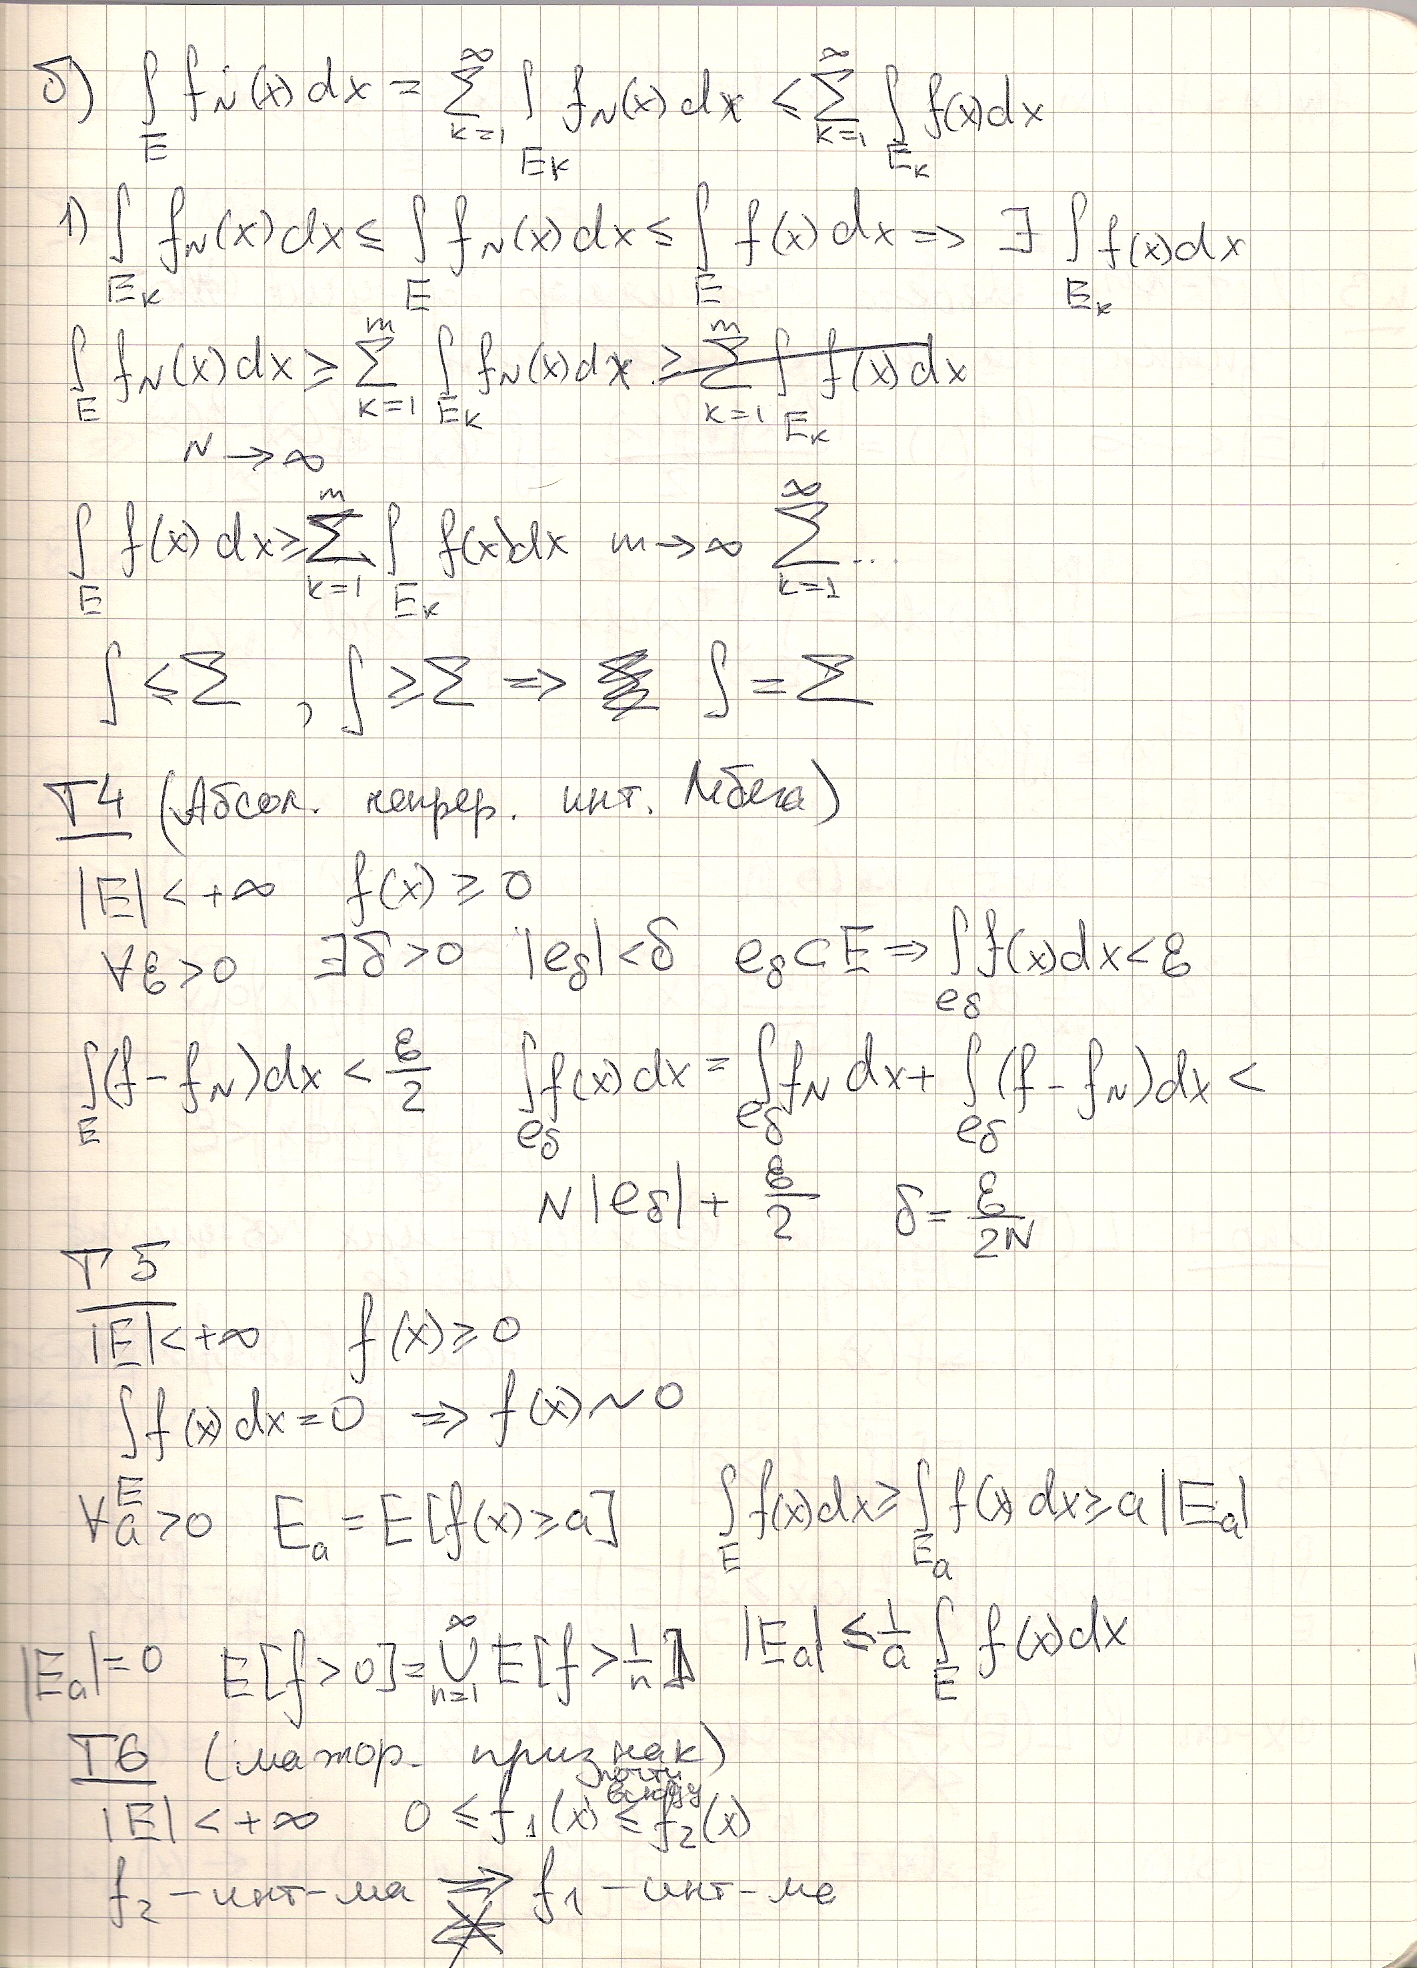 δ) ∫_E f_N(x)dx = Σ_{k=1}^∞ ∫_{E_k} f_N(x)dx ≤ Σ_{k=1}^∞ ∫_{E_k} f(x)dx
1) ∫_{E_k} f_N(x)dx ≤ ∫_E f_N(x)dx ≤ ∫_E f(x)dx => ∃ ∫_{E_k} f(x)dx
∫_E f_N(x)dx ≥ Σ_{k=1}^m ∫_{E_k} f_N(x)dx ≥ Σ_{k=1}^m ∫_{E_k} f(x)dx
N → ∞
∫_E f(x)dx ≥ Σ_{k=1}^m ∫_{E_k} f(x)dx m → ∞ Σ_{k=1}^∞ ...
∫ ≤ Σ , ∫ ≥ Σ => ∫ = Σ
T4 (Абсол. непрер. инт. Лебега)
|E| < +∞ f(x) ≥ 0
∀ε > 0 ∃δ > 0 |e_δ| < δ e_δ ⊂ E => ∫_{e_δ} f(x)dx < ε
∫_E (f - f_N)dx < ε/2 ∫_{e_δ} f(x)dx = ∫_{e_δ} f_N dx + ∫_{e_δ} (f - f_N)dx <
N|e_δ| + ε/2 δ = ε/2N
T5
|E| < +∞ f(x) ≥ 0
∫_E f(x)dx = 0 => f(x) ~ 0
∀a > 0 E_a = E[f(x) ≥ a] ∫_E f(x)dx ≥ ∫_{E_a} f(x)dx ≥ a|E_a|
|E_a| = 0 E[f > 0] = ∪_{n=1}^∞ E[f > 1/n] |E_a| ≤ 1/a ∫_E f(x)dx
T6 (мажор. признак)
почти всюду
|E| < +∞ 0 ≤ f_1(x) ≤ f_2(x)
f_2 - инт-ма => f_1 - инт-ма